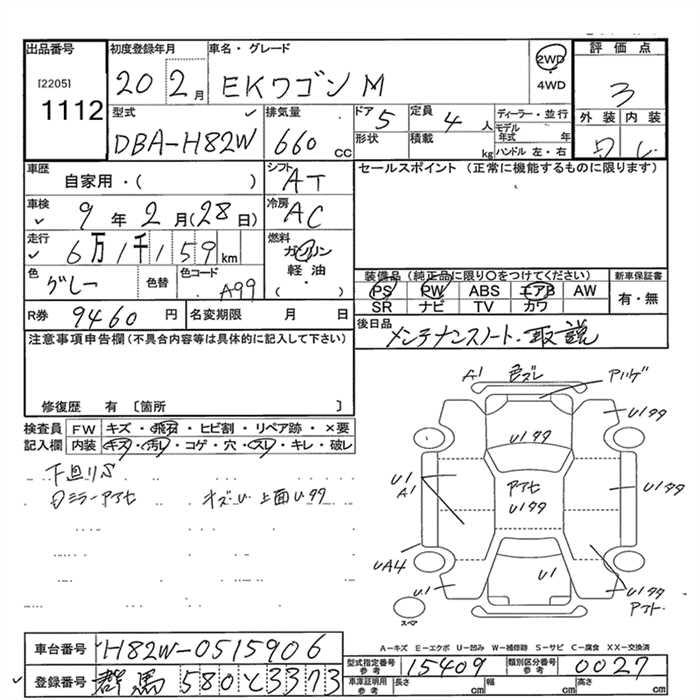 出品番号 初度登録年月 車名・グレード 評価点
[2205] 1112 20 2月 EKワゴン M 2WD 4WD 3
型式 排気量 ドア 5 定員 4人 ディーラー・並行 外装 内装
DBA-H82W 660cc 形状 積載 kg モデル年式 年 ハンドル 左・右
車歴 シフト セールスポイント (正常に機能するものに限ります)
自家用・( ) AT
車検 9年2月(28日) 冷房 AC
走行 6万1千159km 燃料 ガソリン 軽油・( )
色 グレー 色替 色コード A99
装備品 (純正品に限り○をつけてください) 新車保証書
PS PW ABS エアB AW 有・無
SR ナビ TV カワ
R券 9460円 名変期限 月 日
後日品 メンテナンスノート・取説
注意事項申告欄 (不具合内容等は具体的に記入して下さい)
修復歴 有 〔箇所 〕
検査員記入欄 FW キズ・飛石・ヒビ割・リペア跡・×要
内装 キズ・汚レ・コゲ・穴・スレ・キレ・破レ
下廻りS
上面Uタタ
A1 色ズレ
U1タタ
U1タタ
U1 A1
U1タタ
U1タタ
UA4
U1
U1
U1タタ
スペア
A-キズ E-エクボ U-凹み W-補修跡 S-サビ C-腐食 XX-交換済
車台番号 H82W-0515906
型式指定番号 参考 15409 類別区分番号 参考 0027
登録番号 群馬 580 と 3373
車庫証明用 参考 長さ cm 幅 cm 高さ cm